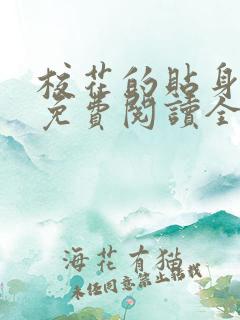 校花的貼身
免費閱讀全
海花有猫
未经同意禁止转载